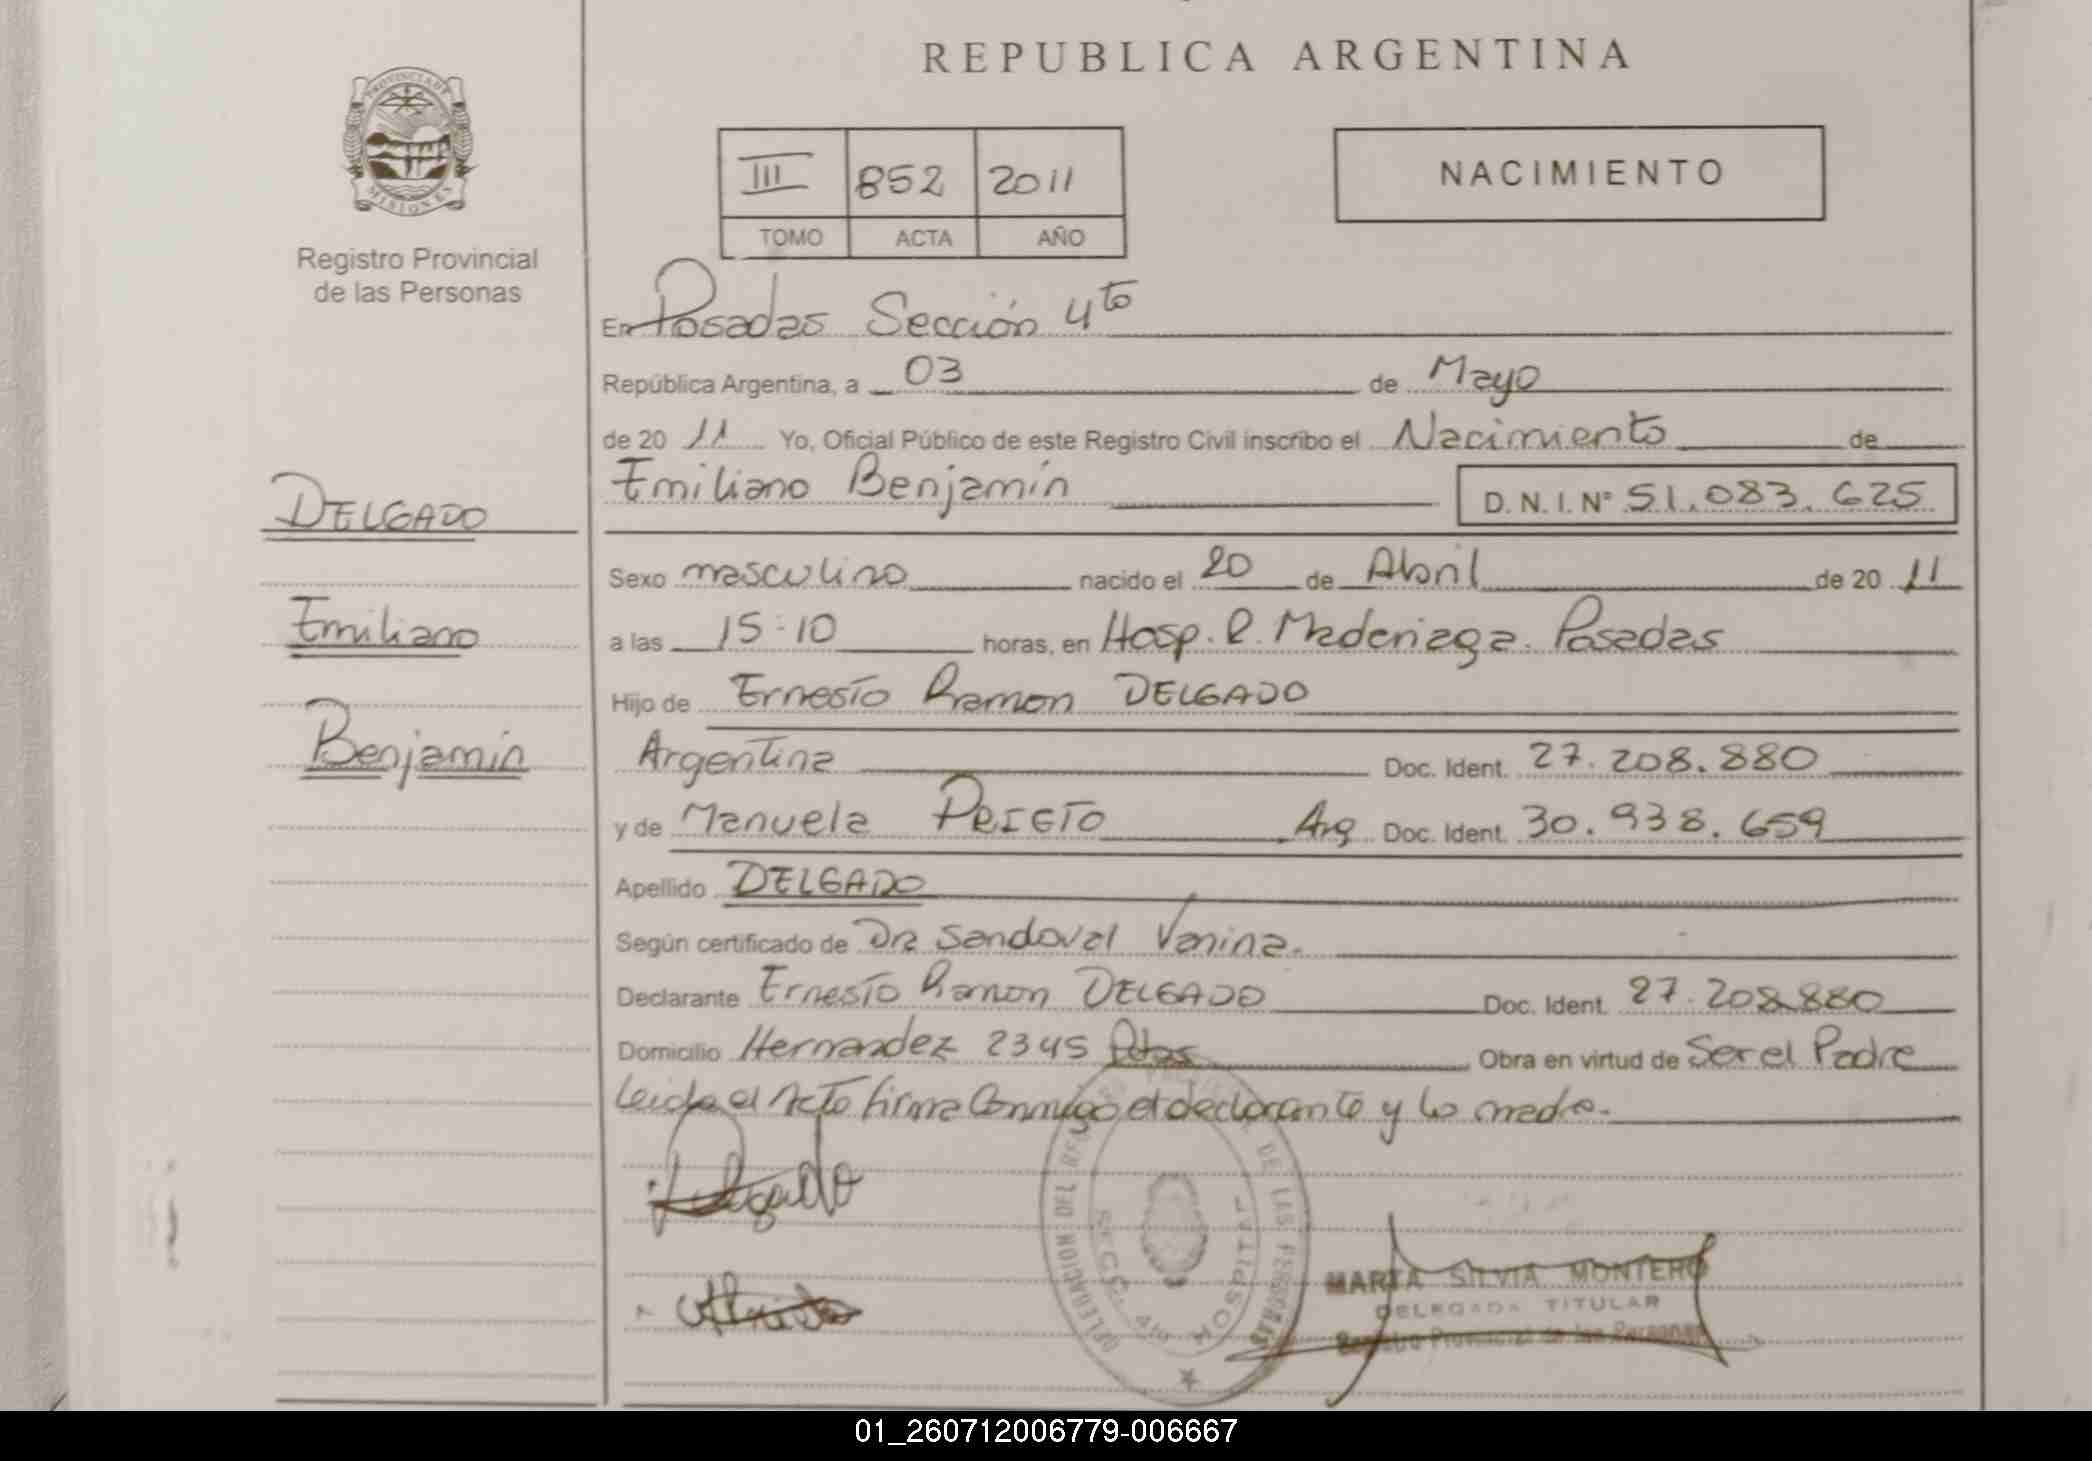 REPUBLICA ARGENTINA
PROVINCIA DE
MISIONES
Registro Provincial
de las Personas
III 852 2011
TOMO ACTA AÑO
NACIMIENTO
En Posadas Sección 4to
República Argentina, a 03 de Mayo
de 20 11 Yo, Oficial Público de este Registro Civil inscribo el Nacimiento de
Emiliano Benjamín D. N. I. Nº 51.083.625
DELGADO
Emiliano
Benjamín
Sexo masculino nacido el 20 de Abril de 20 11
a las 15:10 horas, en Hosp. R. Madariaga. Posadas
Hijo de Ernesto Ramon DELGADO
Argentina Doc. Ident. 27.208.880
y de Manuela PRIETO Arg Doc. Ident. 30.938.659
Apellido DELGADO
Según certificado de Dra Sandoval Vanina.
Declarante Ernesto Ramon DELGADO Doc. Ident. 27.208.880
Domicilio Hernandez 2345 Pdas Obra en virtud de Ser el Padre
Leida el Acta firma Conmigo el declarante y la madre.
Delgado
DELEGACION DEL REG PROVINCIAL DE LAS PERSONAS
SECC. 4ta
MARIA SILVIA MONTERO
DELEGADA TITULAR
Registro Provincial de las Personas
01_260712006779-006667